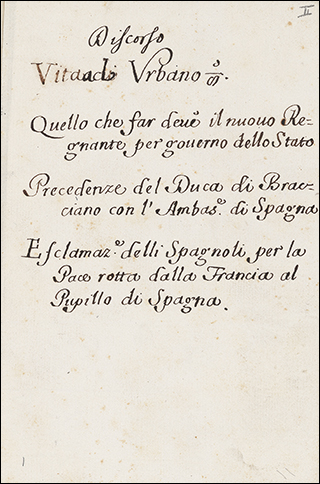 II
Discorso
Vita di Urbano 8º.
Quello che far deue il nuouo Re-
gnante per gouerno dello Stato
Precedenze del Duca di Brac-
ciano con l'Ambas.r di Spagna
Esclamaz.e delli Spagnoli per la
Pace rotta dalla Francia al
Pupillo di Spagna.